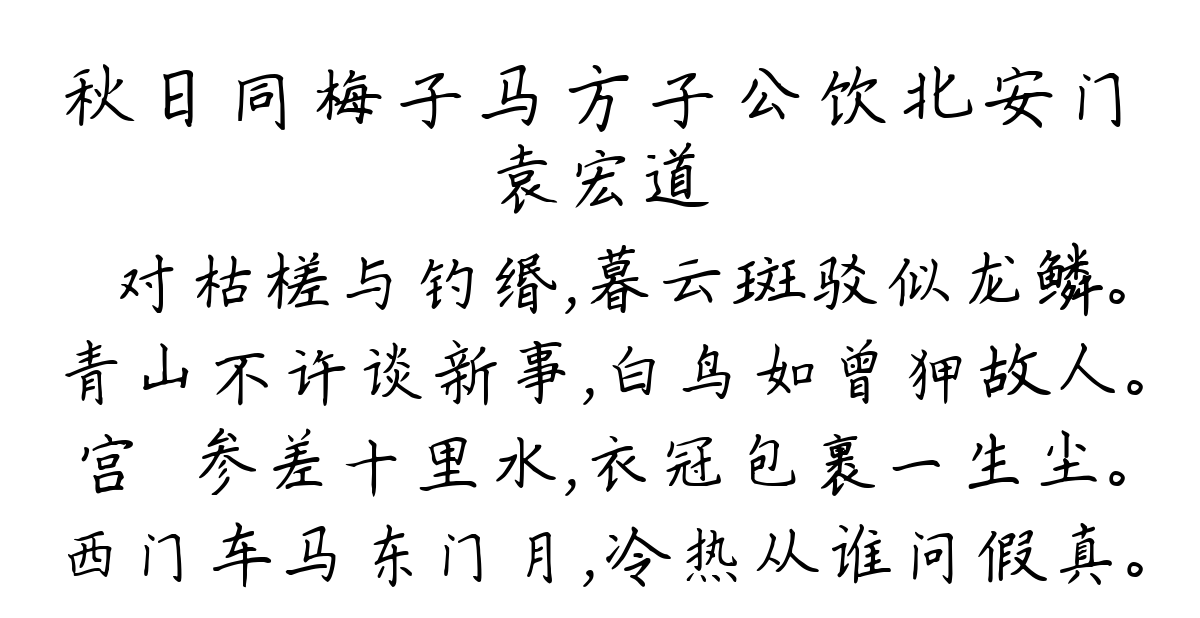 秋日同梅子马方子公饮北安门
袁宏道
对枯槎与钓缗,暮云斑驳似龙鳞。
青山不许谈新事,白鸟如曾狎故人。
宫 参差十里水,衣冠包裹一生尘。
西门车马东门月,冷热从谁问假真。